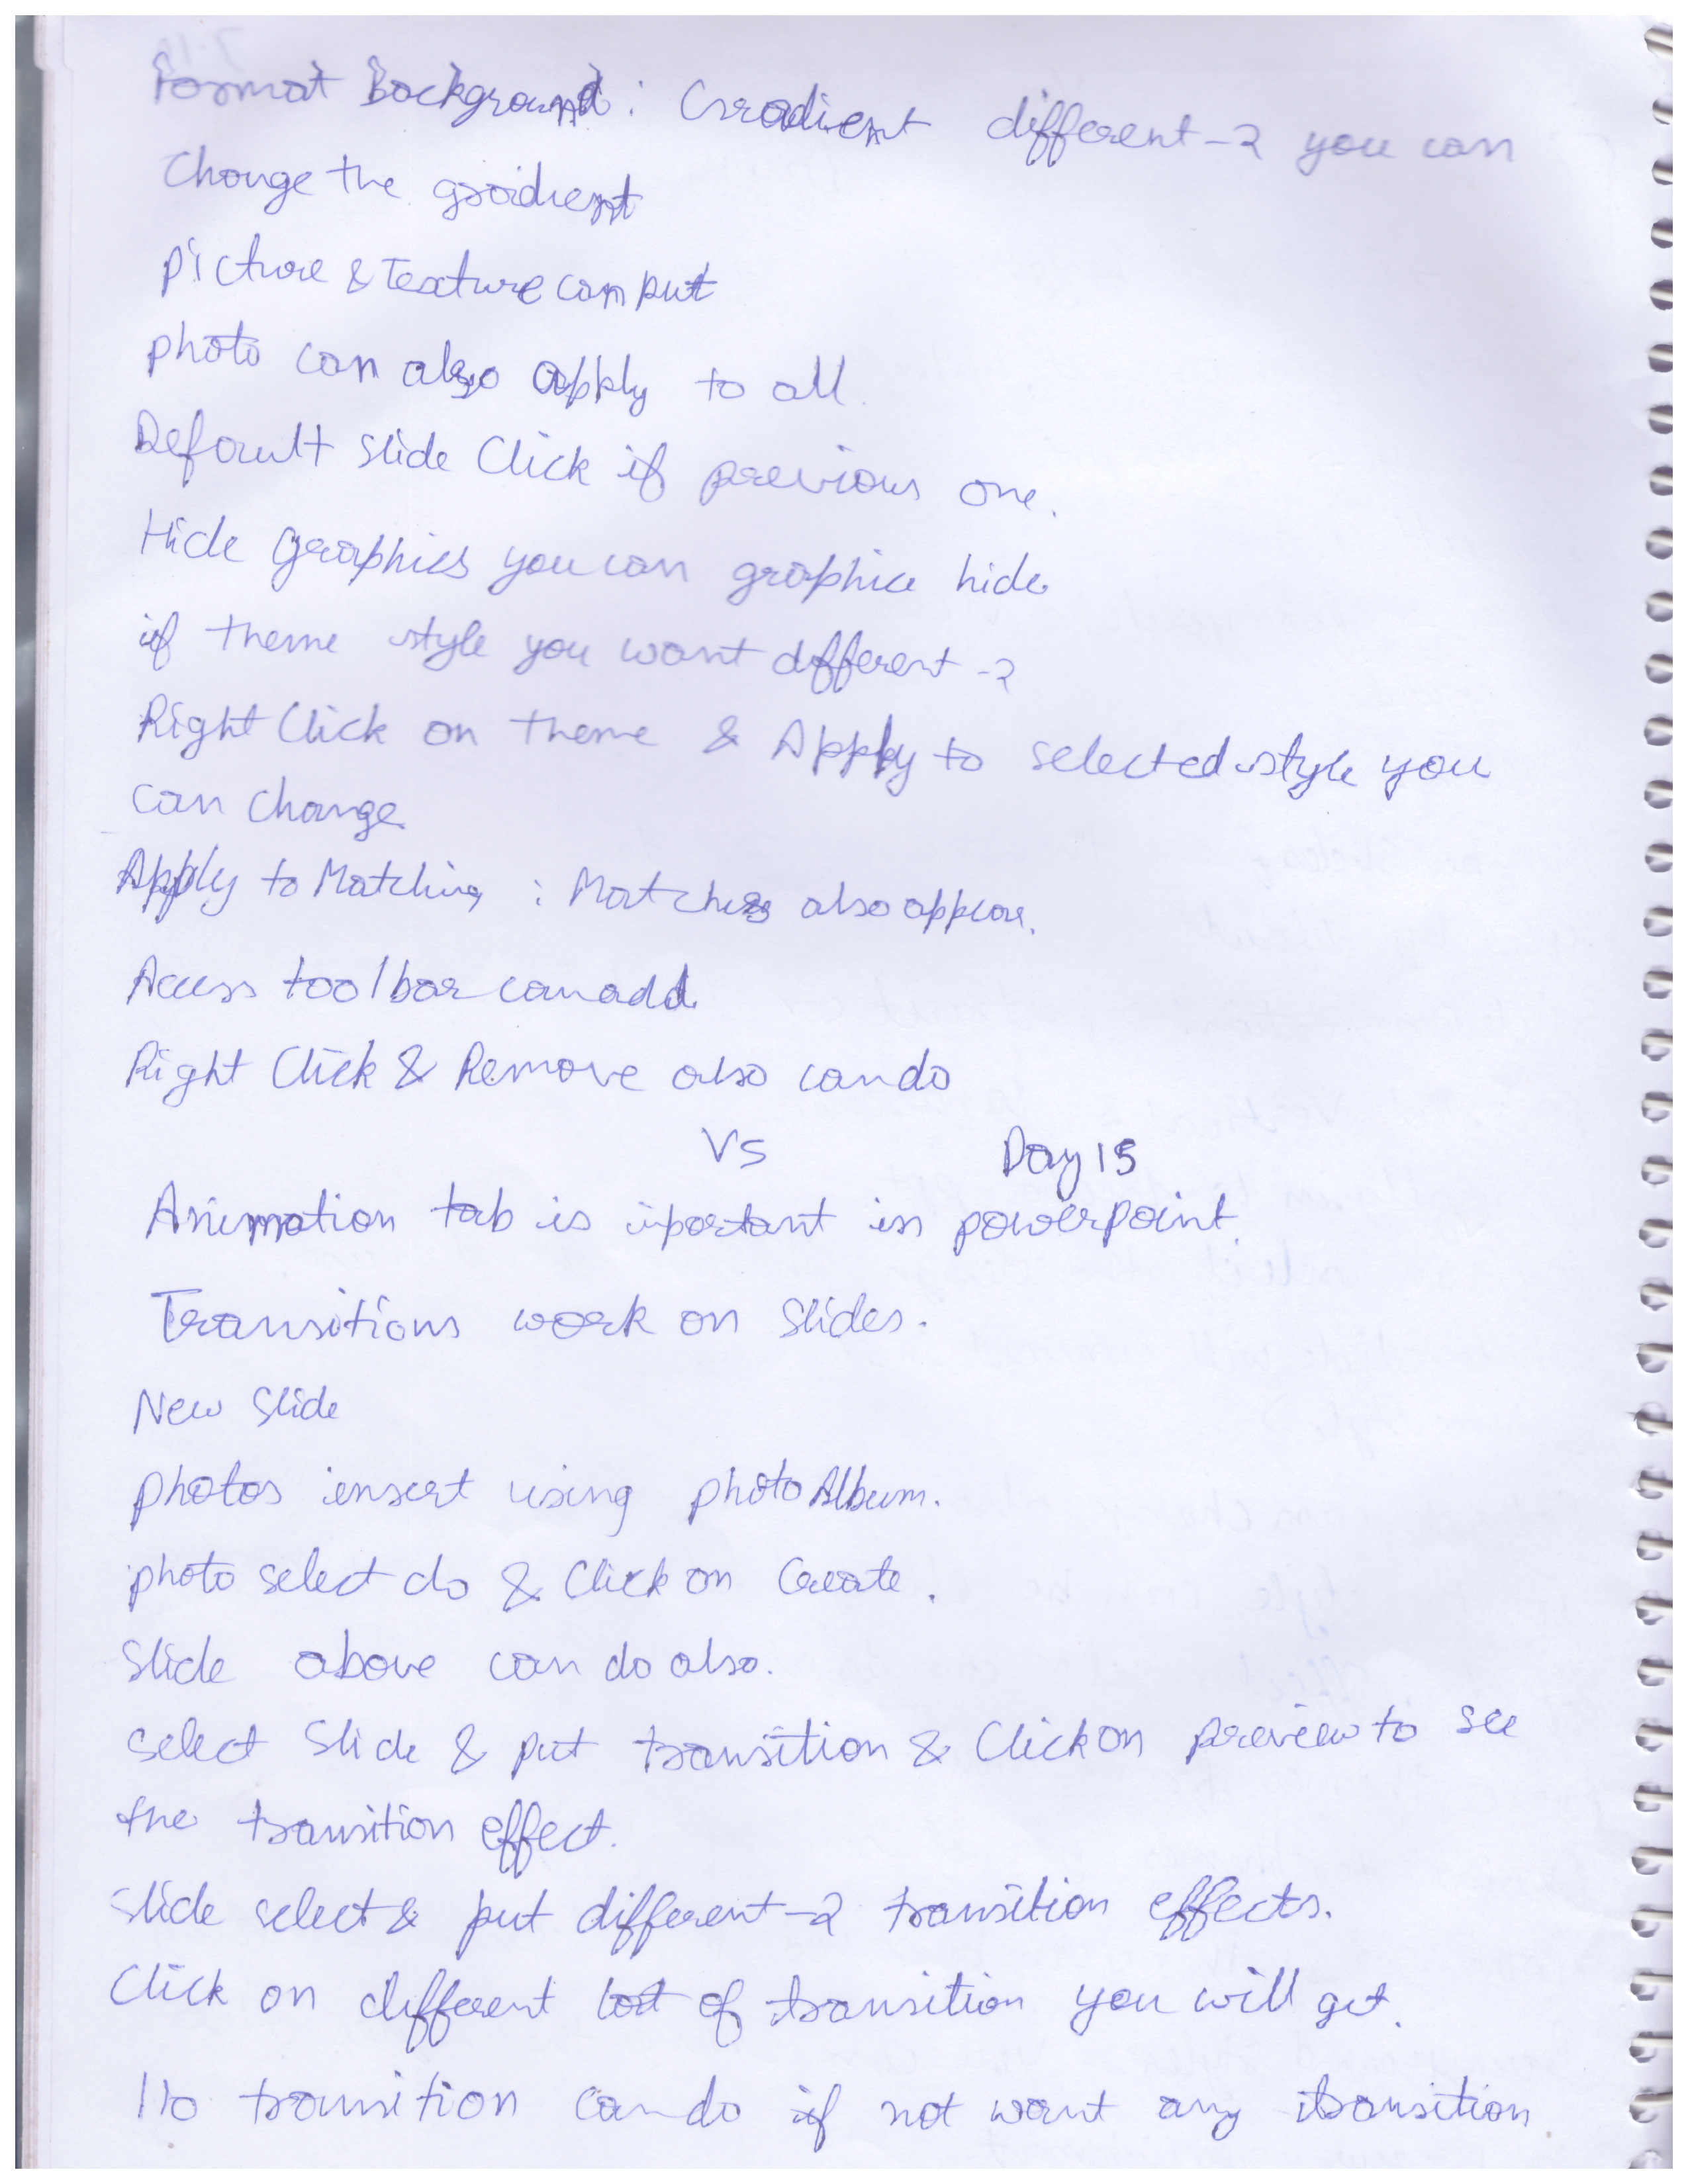 Format Background: Gradient different-2 you can
Change the gradient
Picture & Texture can put
photo can also apply to all.
Default slide Click if previous one.
Hide graphics you can graphice hide
if theme style you want different-2
Right Click on theme & Apply to selected style you
can change
Apply to Matching : Matches also appear.
Access toolbar can add.
Right Click & Remove also can do
VS Day 15
Animation tab is iportant in powerpoint.
Transitions work on slides.
New Slide
photos insert using photo Album.
photo select do & Click on Create.
Slide above can do also.
Select Slide & put transition & Click on preview to see
the transition effect.
Slide select & put different-2 transition effects.
Click on different lot of transition you will get.
No transition can do if not want any transition